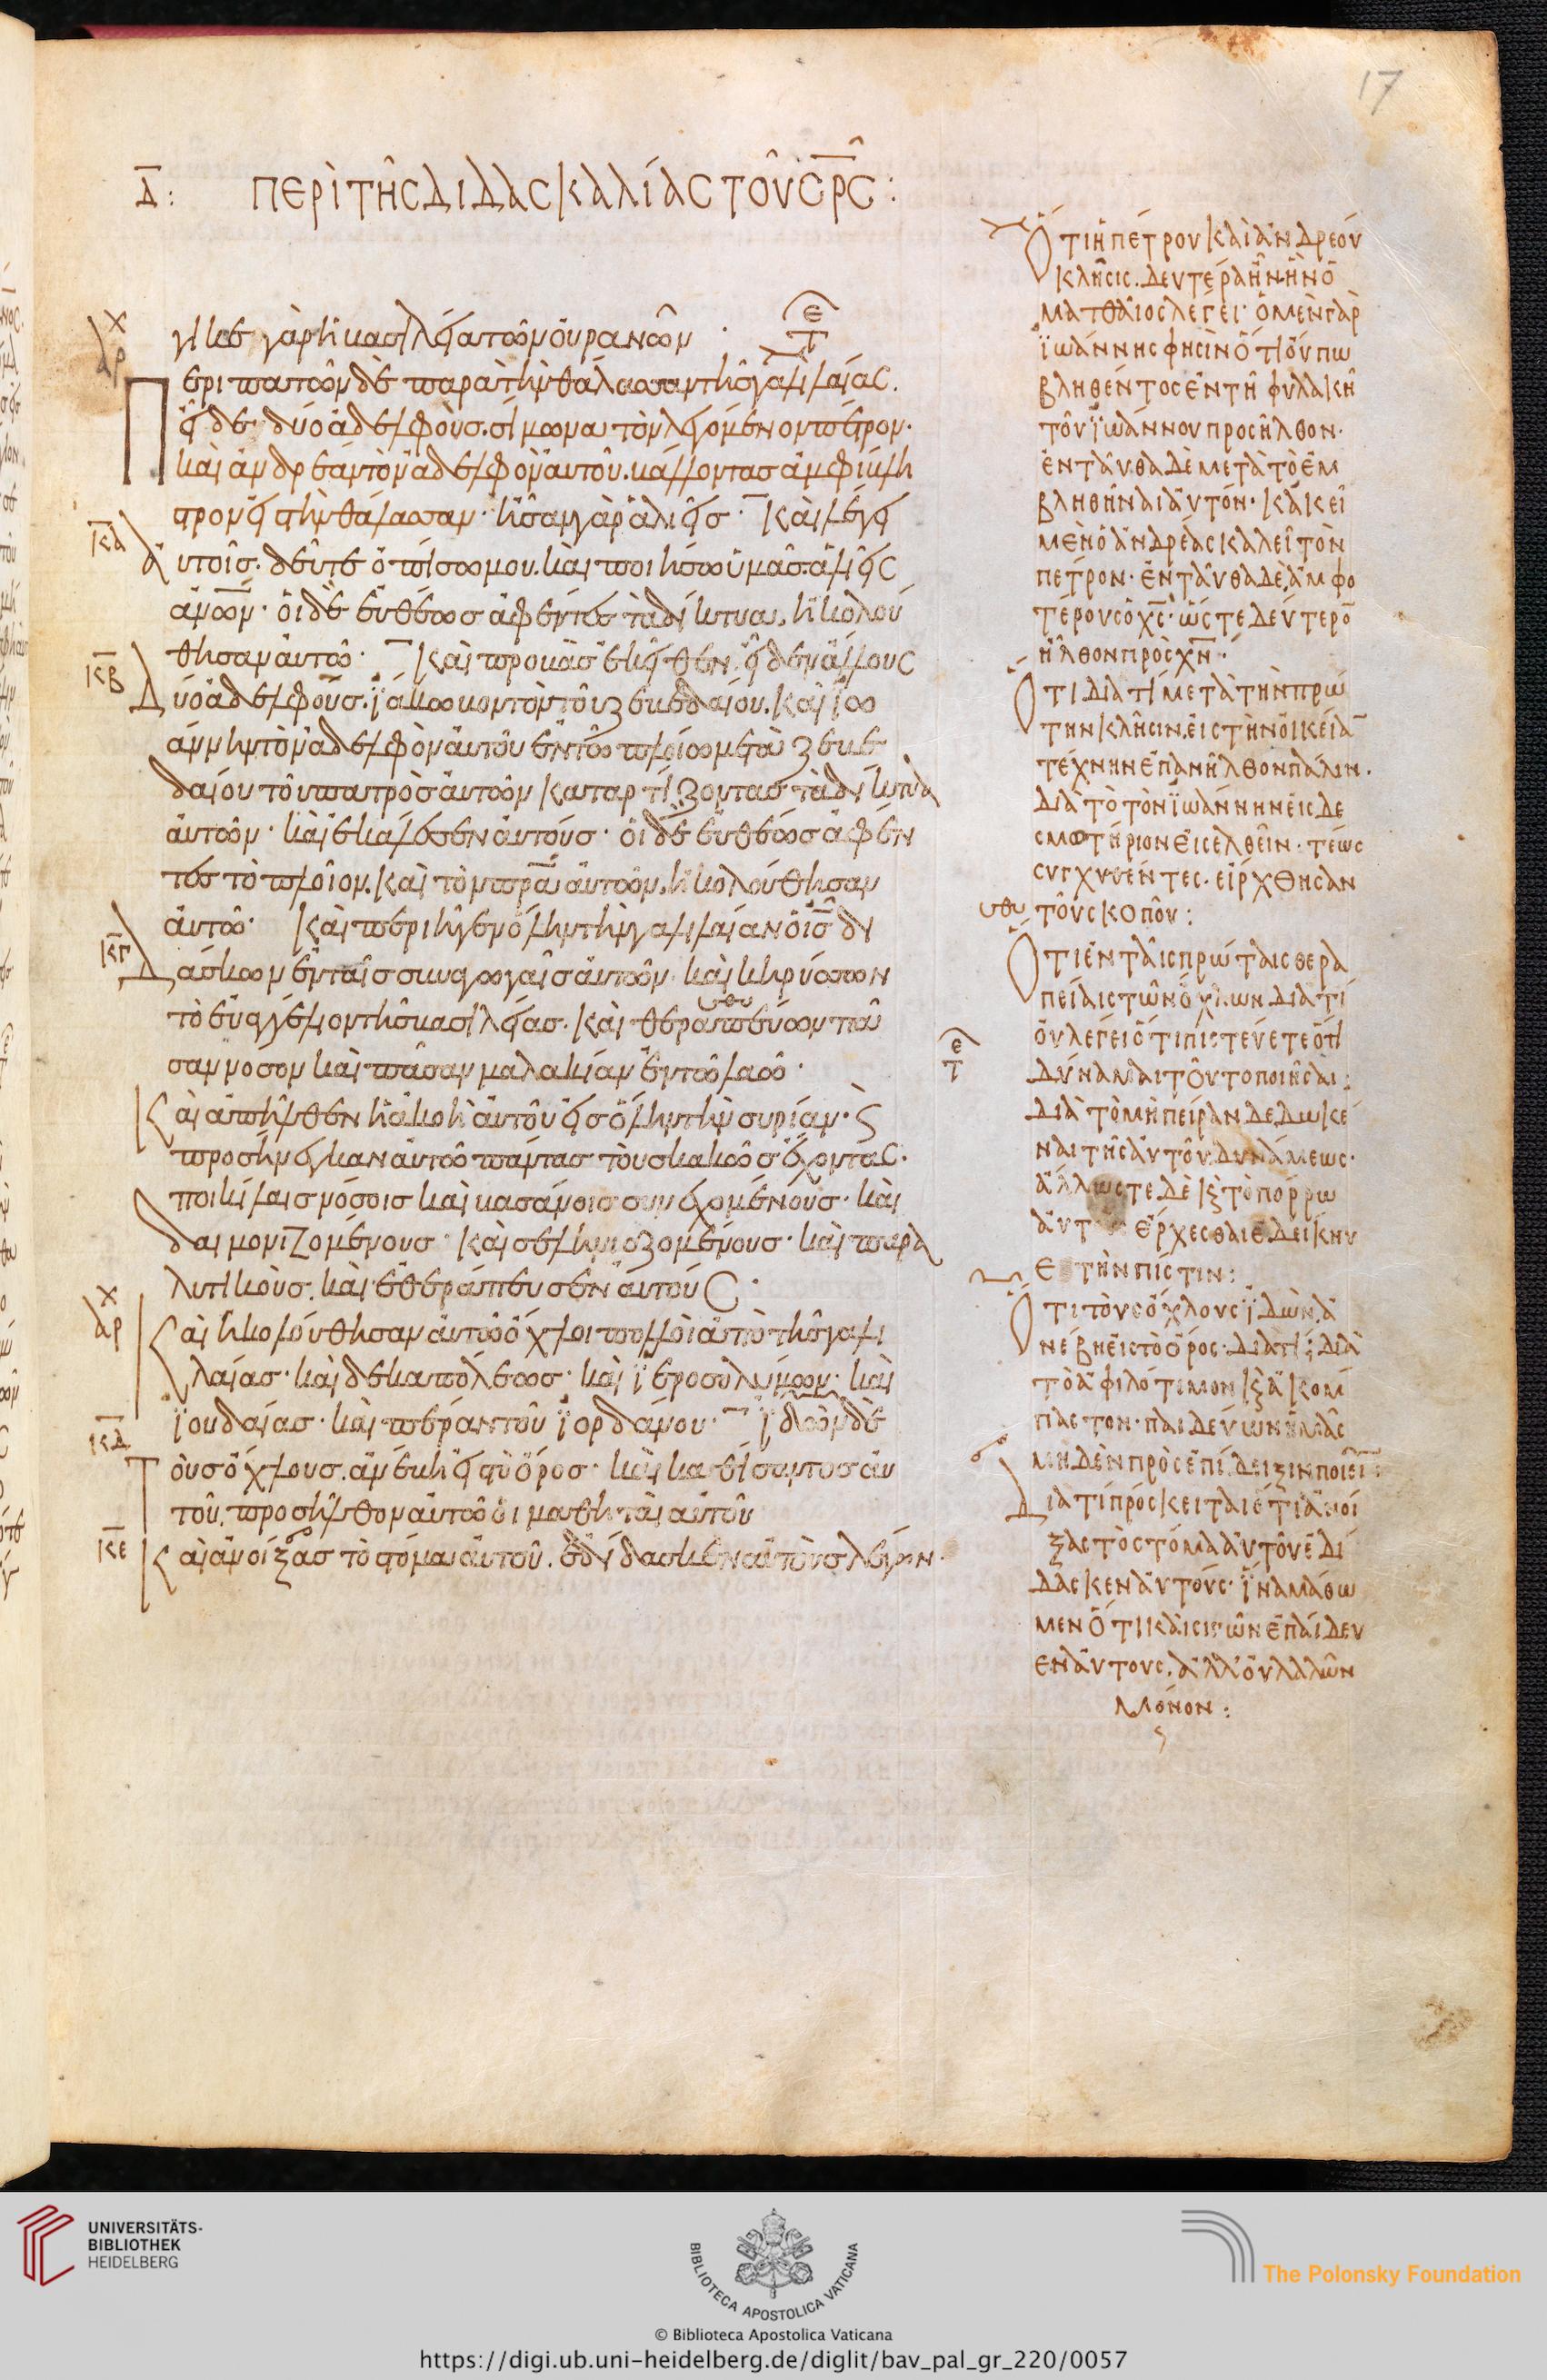 17
Δ: ΠΕΡῚ ΤΗ͂Σ ΔΙΔΑΣΚΑΛΊΑΣ ΤΟΥ͂ ΣΡΣ:
χ
αρ
γικε γὰρ ἡ βασιλεία τῶν οὐρανῶν ·
ε
τ
Περιπατῶν δὲ παρὰ τὴν θάλασσαν τῆς γαλιλαίας.
εἶδε δύο ἀδελφοὺς. σίμωνα τὸν λεγόμενον πέτρον·
καὶ ἀνδρέαν τὸν ἀδελφὸν αὐτοῦ. βάλλοντας ἀμφίβλη
στρον εἰς τὴν θάλασσαν· ἦσαν γὰρ ἁλιεῖς· καὶ λέγει
κα
Αὐτοῖς. δεῦτε ὀπίσω μου. καὶ ποιήσω ὑμᾶς ἁλιεῖς
ἀνων· οἱ δὲ εὐθέως ἀφέντες τὰ δίκτυα, ἠκολού
θησαν αὐτῶ· καὶ προβὰς ἐκεῖθεν, εἶδεν ἄλλους
κβ
Δύο ἀδελφούς. ϊάκωβον τὸν τοῦ ζεβεδαίου. καὶ ϊω
άννην τὸν ἀδελφὸν αὐτοῦ ἐν τῶ πλοίω μετὰ ζεβε
δαίου τοῦ πατρὸς αὐτῶν καταρτίζοντας τὰ δίκτυα
αὐτῶν· καὶ ἐκάλεσεν αὐτούς· οἱ δὲ εὐθέως ἀφέν
τες τὸ πλοῖον. καὶ τὸν πρα αὐτῶν, ἠκολούθησαν
αὐτῶ· καὶ περιῆγεν ὅλην τὴν γαλιλαίαν ὁ ις δι
κγ
Δάσκων ἐν ταῖς συναγωγαῖς αὐτῶν· καὶ κηρύσσων
τὸ εὐαγγέλιον τῆς βασιλείας. καὶ θεραπεύων πᾶ
σαν νόσον καὶ πᾶσαν μαλακίαν ἐν τῶ λαῶ·
Καὶ ἀπῆλθεν ἡ ἀκοὴ αὐτοῦ εἰς ὅλην τὴν συρίαν· ϛ
προσήνεγκαν αὐτῶ πάντας τοὺς κακῶς ἔχοντας·
ποικίλαις νόσοις καὶ βασάνοις συνεχομένους· καὶ
δαιμονιζομένους· καὶ σεληνιαζομένους· καὶ παρα
λυτικοὺς. καὶ ἐθεράπευσεν αὐτούς·
χ
αρ
Καὶ ἠκολούθησαν αὐτῶ ὄχλοι πολλοὶ ἀπὸ τῆς γαλι
λαίας· καὶ δεκαπόλεως· καὶ ϊεροσολύμων· καὶ
ϊουδαίας· καὶ πέραν τοῦ ϊορδάνου· ϊδὼν δὲ
κδ
Τοὺς ὄχλους, ἀνέβη εἰς τὸ ὄρος· καὶ καθίσαντος αὐ
τοῦ, προσῆλθον αὐτῶ οἱ μαθηταὶ αὐτοῦ
κε
Καὶ ἀνοίξας τὸ στόμα αὐτοῦ. ἐδίδασκεν αὐτοὺς λέγων·
Ὅτι ἡ πέτρου καὶ ἀνδρέου
κλῆσις. δευτέρα ἦν ἣν ὁ
ματθαῖος λέγει· ὁ μὲν γὰρ
ϊωάννης φησὶν ὅτι οὔπω
βληθέντος ἐν τῆ φυλακῆ
τοῦ ϊωάννου προσῆλθον·
ἐνταῦθα δὲ μετὰ τὸ ἐμ
βληθῆναι αὐτόν· κἀκεῖ
μὲν ὁ ἀνδρέας καλεῖ τὸν
πέτρον· ἐνταῦθα δὲ, ἀμφο
τέρους ὁ χς· ὥστε δεύτερο
ἦλθον πρὸς χν·
Ὅτι διατί μετὰ τὴν πρώ
την κλῆσιν, εἰς τὴν οἰκεία
τέχνην ἐπανῆλθον πάλιν·
διὰ τὸ τὸν ϊωάννην εἰς δε
σμωτήριον εἰσελθεῖν· τέως
συγχυθέντες. εἴρχθησαν
τοῦ σκοποῦ:
Ὅτι ἐν ταῖς πρώταις θερα
πείαις τῶν ὄχλων διατί
οὐ λέγει ὅτι πιστεύετε ὅτι
δύναμαι τοῦτο ποιῆσαι;
διὰ τὸ μὴ πεῖραν δεδωκέ
ναι τῆς αὐτοῦ δυνάμεως·
ἄλλως τε δὲ κ τὸ πόρρω
ἔρχεσθαι ἐδείκνυ
τὴν πίστιν:
Ὅτι τοὺς ὄχλους ϊδὼν, ἀ
νέβη εἰς τὸ ὄρος· διατί; διὰ
τὸ ἀφιλότιμον κ ἄκομ
παστον· παιδεύων ἡμᾶς
μηδὲν πρὸς ἐπίδειξιν ποιεῖ:
Διατί πρόσκειται ἔτι ἀνοί
ξας τὸ στόμα αὐτοῦ ἐδί
δασκεν αὐτούς· ἵνα μάθω
μεν ὅτι καὶ σιγῶν ἐπαίδευ
εν αὐτους, ἀλλ' οὐ λαλῶν
μόνον:
UNIVERSITÄTS-
BIBLIOTHEK
HEIDELBERG
BIBLIOTECA APOSTOLICA VATICANA
The Polonsky Foundation
© Biblioteca Apostolica Vaticana
https://digi.ub.uni-heidelberg.de/diglit/bav_pal_gr_220/0057